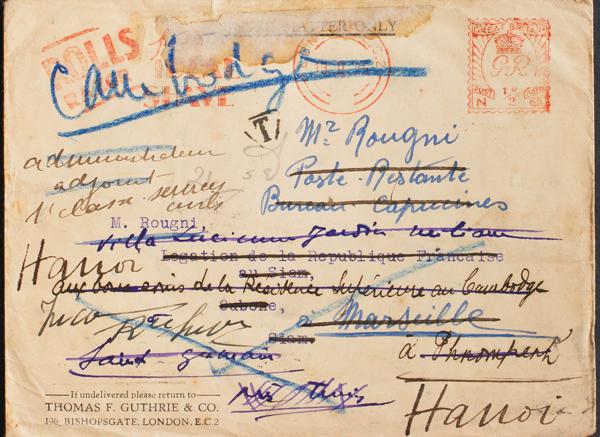 PRINTED MATTER ONLY
ROLLS
RAZOR
SHAVE
GREAT BRITAIN
G R
POSTAGE PAID
1D
2
N 65
Cambodge
T
Mr Rougni
Poste-Restante
Bureau Capucines
administrateur
adjoint
1e classe services
civils
M. Rougni,
Villa Lucienne Jardin
Legation de la Republique Francaise
au Siam,
Hanoi
aux bons soins de la Résidence Supérieure au Cambodge
Siam
à Marseille
Saint
à Phnompenh
Hanoi
If undelivered please return to
THOMAS F. GUTHRIE & CO.
196, BISHOPSGATE, LONDON, E.C.2